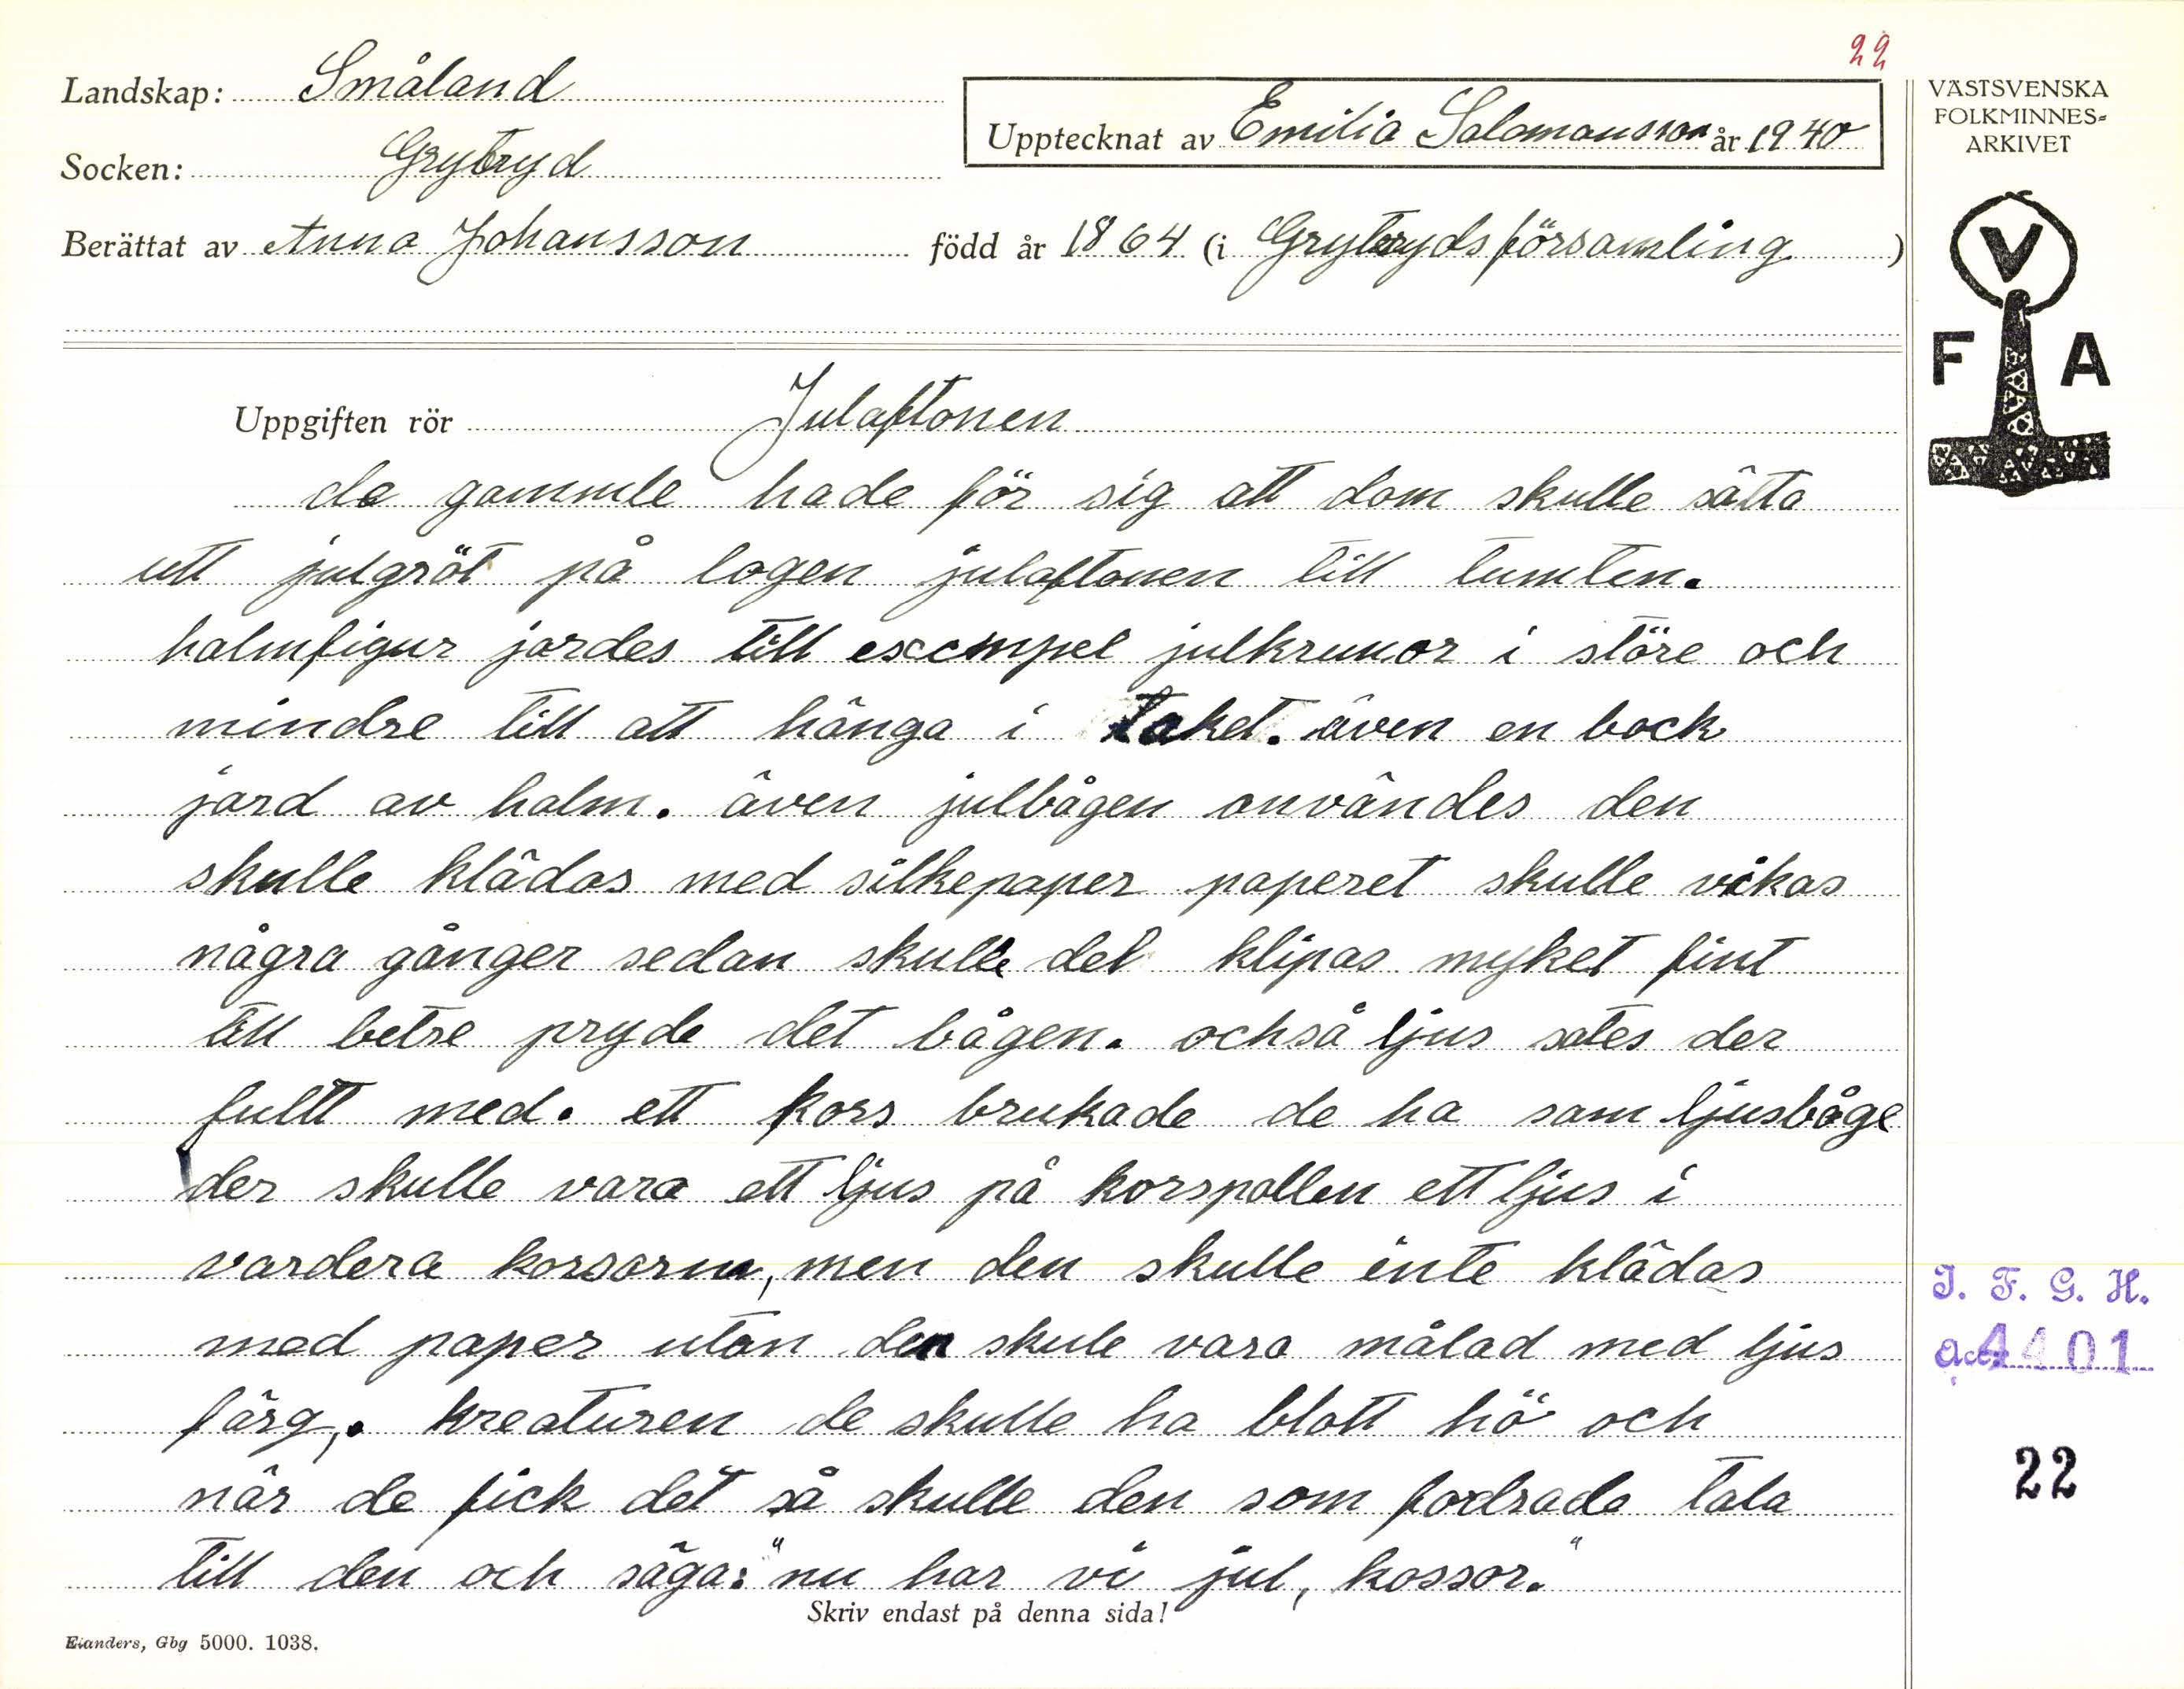 22
Landskap: Småland
Upptecknat av Emilia Salomonsson år 1940
Socken: Gryteryd
Berättat av Anna Johansson född år 1864 (i Gryteryds församling)
VÄSTSVENSKA
FOLKMINNES=
ARKIVET
V
F A
Uppgiften rör Julaftonen
de gammle hade för sig att dom skulle sätta
utt julgröt på logen julaftonen till tumten.
halmfigur jordes till exempel julkrunor i störe och
mindre till att hänga i taket. även en bock
jord av halm. även julbågen användes den
skulle klädas med silkepaper paperet skulle vikas
några gånger sedan skulle det klipas myket fint
till betre pryde det bågen. ochså ljus sates der
fullt med. ett kors brukade de ha som ljusbåge
der skulle vara ett ljus på korspollen ett ljus i
vardera korsarna, men den skulle inte klädas
med paper utan den skule vara målad med ljus
färg,. kreaturen de skulle ha blott hö och
när de fick det så skulle den som fodrade tala
till den och säga: "nu har vi jul, kossor."
Skriv endast på denna sida!
Elanders, Gbg 5000. 1038.
I. F. G. H.
acc 4401
22